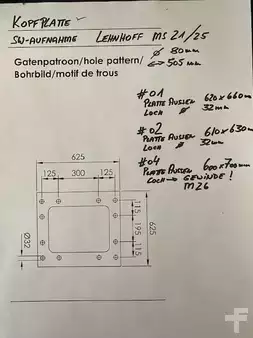 KOPFPLATTE
SW-AUFNAHME LEHNHOFF MS 21/25
Ø 80mm
505 mm
Gatenpatroon/hole pattern/
Bohrbild/motif de trous
#01
PLATTE AUSSEN 620 x 660 mm
LOCH Ø 32mm
#02
PLATTE AUSSEN 610 x 630 mm
LOCH Ø 32mm
#04
PLATTE AUSSEN 600 x 700 mm
LOCH → GEWINDE!
M26
625
125 300 125
115
195
115
625
Ø32